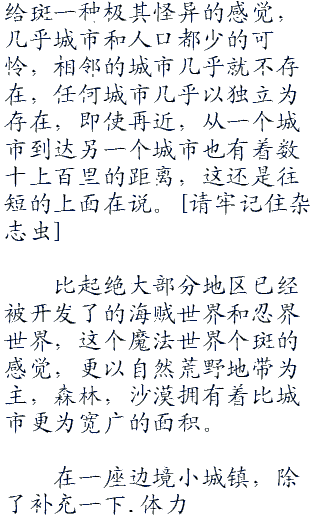 给斑一种极其怪异的感觉，
几乎城市和人口都少的可
怜，相邻的城市几乎就不存
在，任何城市几乎以独立为
存在，即使再近，从一个城
市到达另一个城市也有着数
十上百里的距离，这还是往
短的上面在说。[请牢记住杂
志虫]
比起绝大部分地区已经
被开发了的海贼世界和忍界
世界，这个魔法世界个斑的
感觉，更以自然荒野地带为
主，森林，沙漠拥有着比城
市更为宽广的面积。
在一座边境小城镇，除
了补充一下.体力